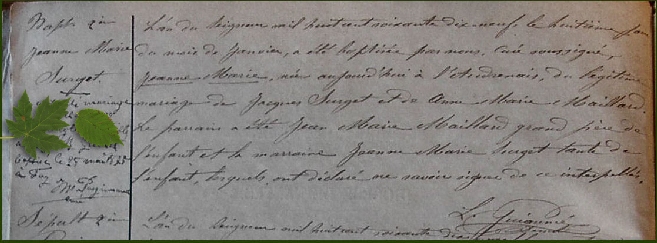 Bapt. 2e
Jeanne Marie
Surget.
L'an du Seigneur mil huit cent soixante dix-neuf, le huitième jour
du mois de Janvier, a été baptisée par nous, Curé soussigné,
Jeanne Marie, née aujourd'hui à du légitime
mariage de Jacques Surget et de Anne Marie Maillard.
Le parrain a été Jean Marie Maillard grand père de
l'enfant et la marraine Jeanne Marie Surget tante de
l'enfant, lesquels ont déclaré ne savoir signer de ce interpellés.
mariage
le 25 mars
Sépult.
L'an du Seigneur mil huit cent soixante